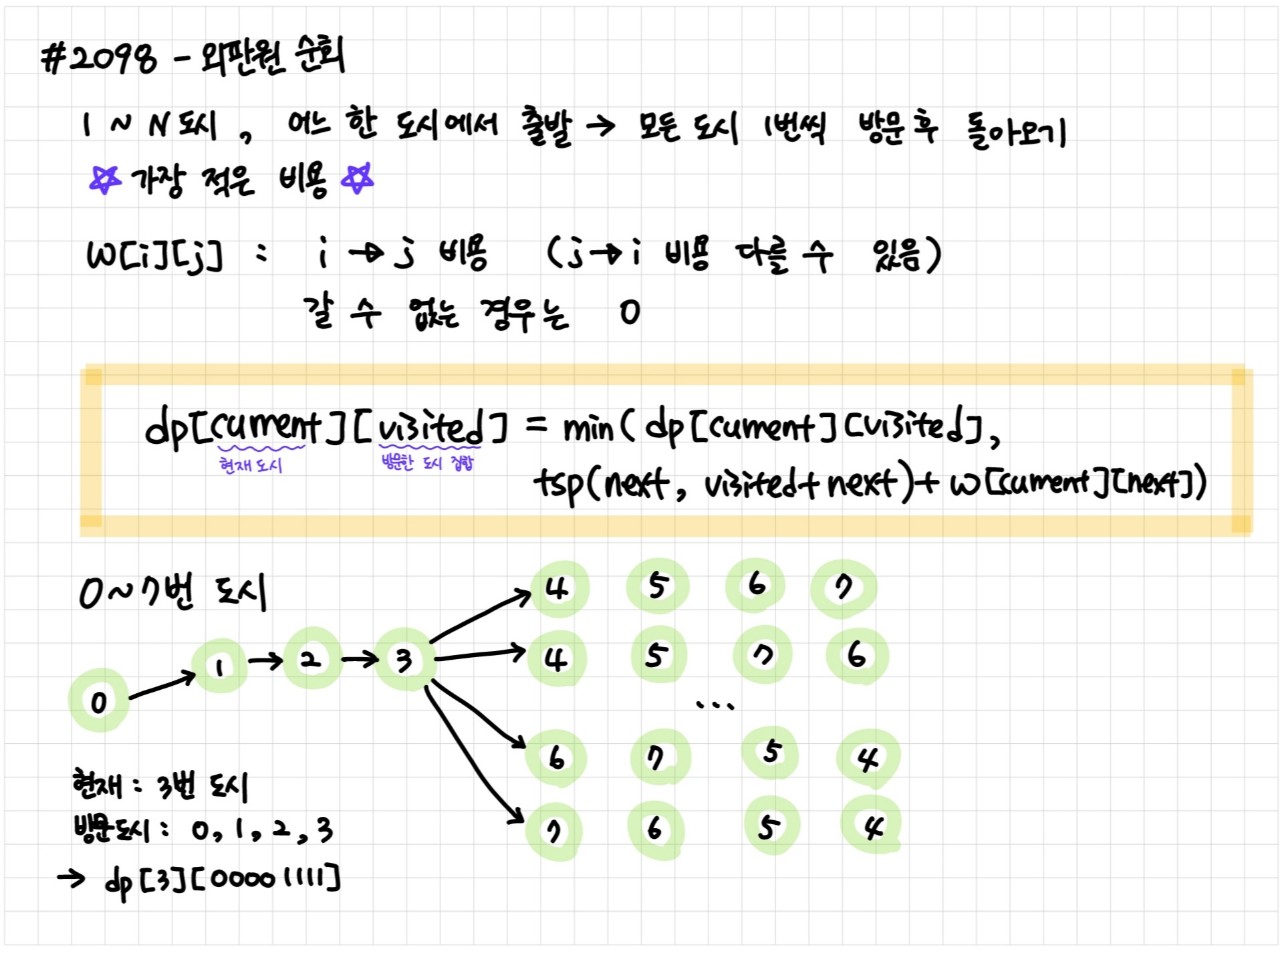 #2098 - 외판원 순회
1 ~ N 도시 , 어느 한 도시에서 출발 → 모든 도시 1번씩 방문 후 돌아오기
☆ 가장 적은 비용 ☆
W[i][j] : i → j 비용 (j → i 비용 다를 수 있음)
갈 수 없는 경우는 0
dp[current][visited] = min( dp[current][visited],
현재 도시 방문한 도시 집합
tsp(next, visited+next) + W[current][next])
0 ~ 7번 도시
4 5 6 7
0 → 1 → 2 → 3 → 4 5 7 6
...
6 7 5 4
7 6 5 4
현재 : 3번 도시
방문도시 : 0, 1, 2, 3
→ dp[3][00001111]